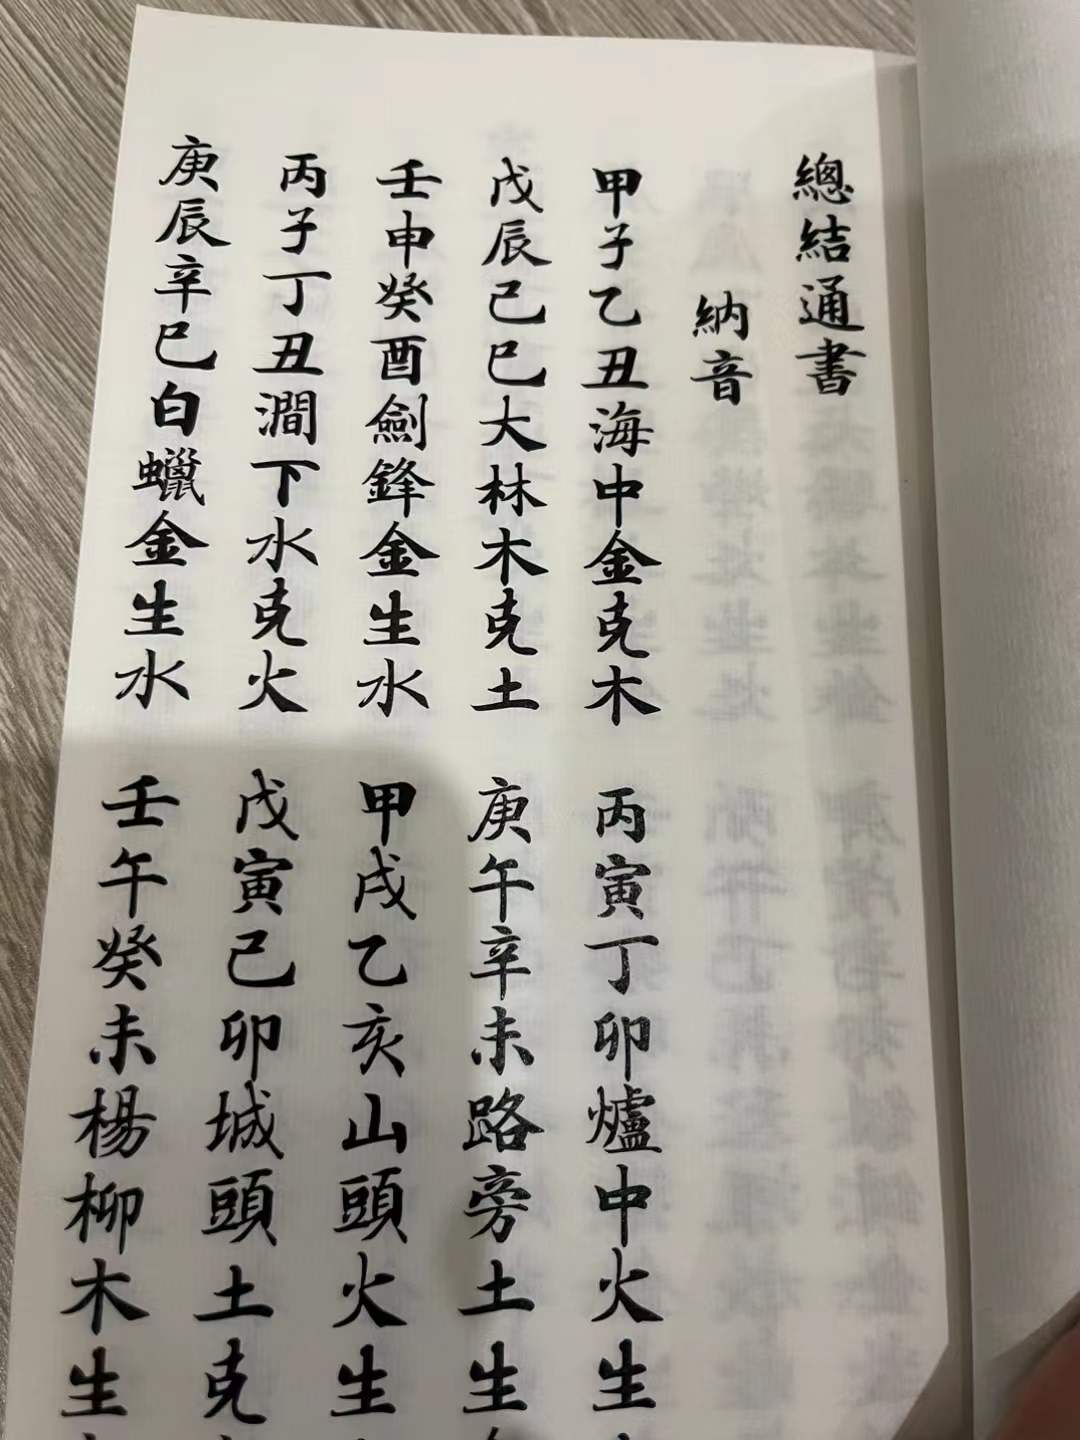 總結通書
納音
甲子乙丑海中金克木 丙寅丁卯爐中火生
戊辰己巳大林木克土 庚午辛未路旁土生
壬申癸酉劍鋒金生水 甲戌乙亥山頭火生
丙子丁丑澗下水克火 戊寅己卯城頭土克
庚辰辛巳白蠟金生水 壬午癸未楊柳木生